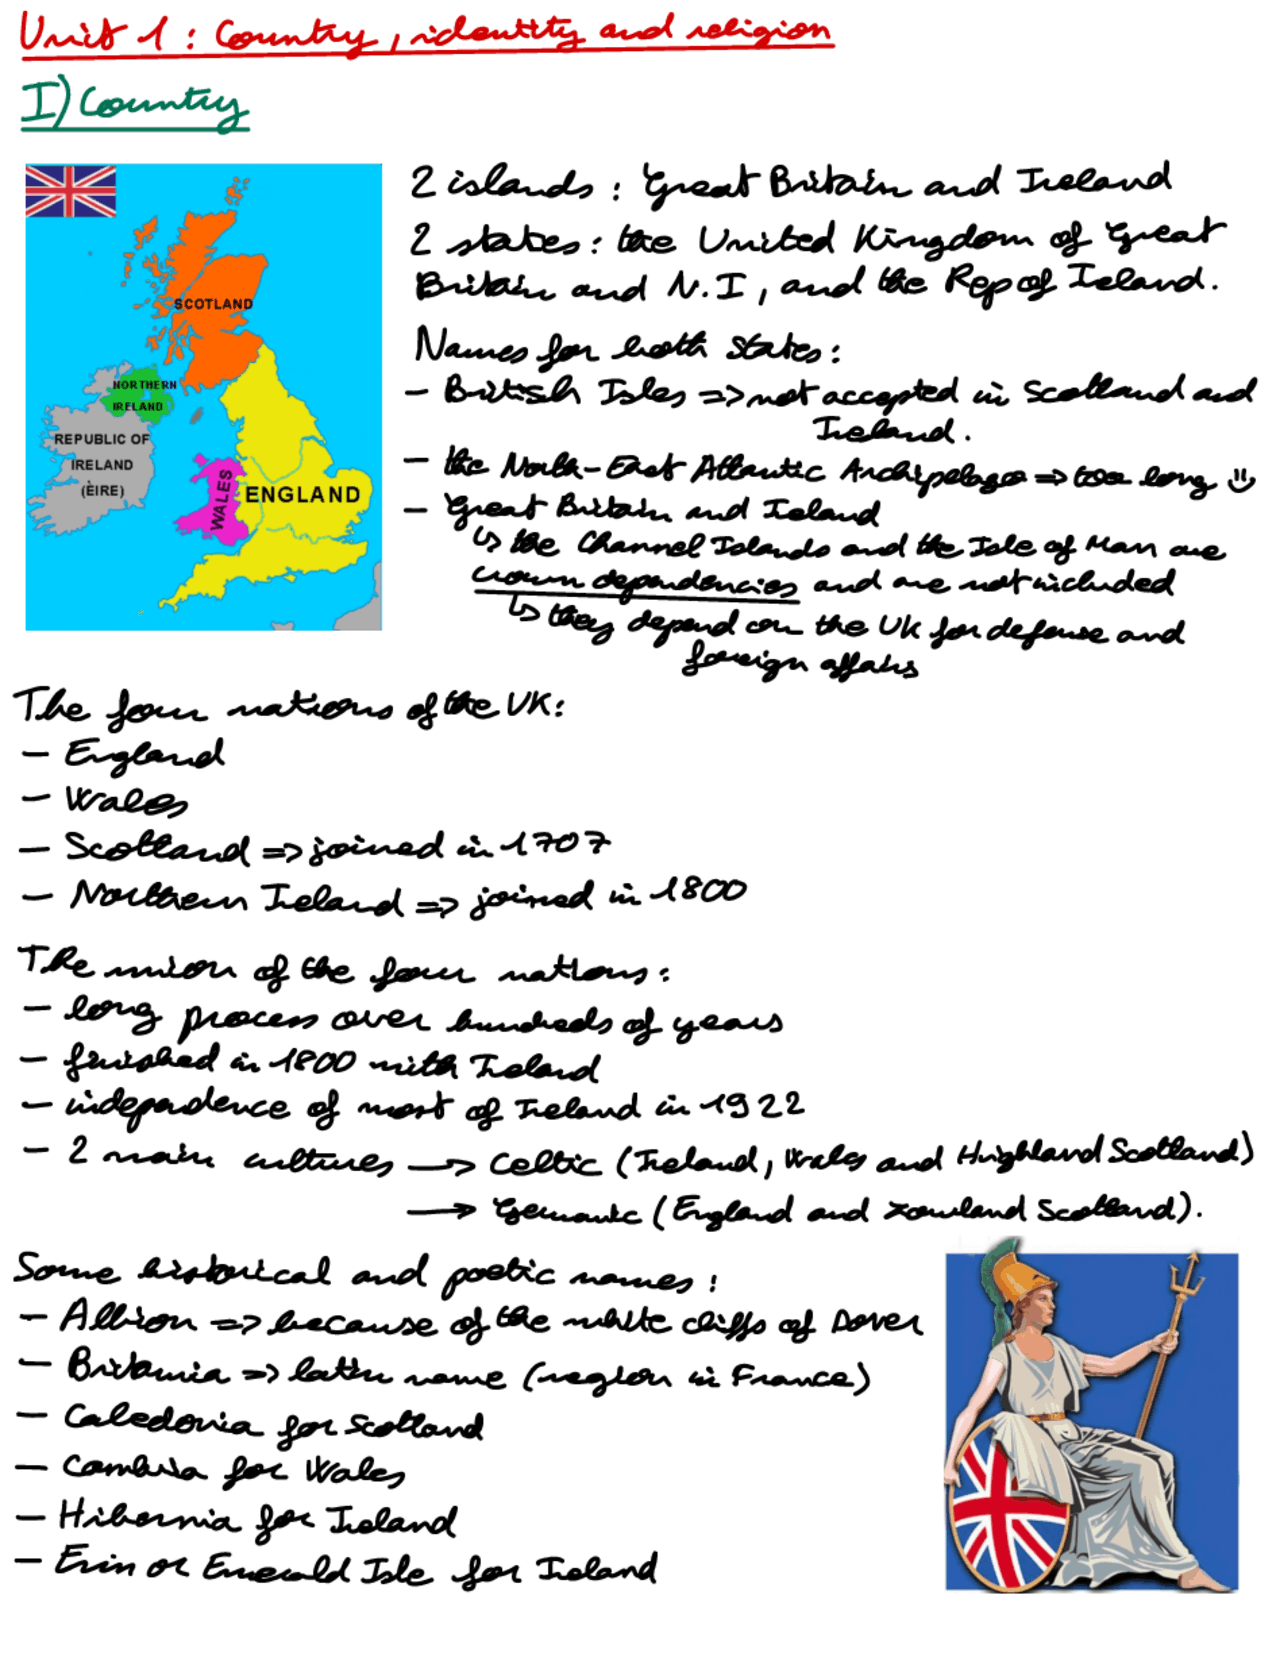 Unit 1 : Country, identity and religion
I) Country
SCOTLAND
NORTHERN
IRELAND
REPUBLIC OF
IRELAND
(ÈIRE)
WALES
ENGLAND
2 islands : Great Britain and Ireland
2 states : the United Kingdom of Great
Britain and N.I, and the Rep of Ireland.
Names for both states :
- British Isles => not accepted in Scotland and
Ireland.
- the North-East Atlantic Archipelago => too long :)
- Great Britain and Ireland
↳ the Channel Islands and the Isle of Man are
crown dependencies and are not included
↳ they depend on the UK for defense and
foreign affairs
The four nations of the UK :
- England
- Wales
- Scotland => joined in 1707
- Northern Ireland => joined in 1800
The union of the four nations :
- long process over hundreds of years
- finished in 1800 with Ireland
- independence of most of Ireland in 1922
- 2 main cultures → Celtic (Ireland, Wales and Highland Scotland)
→ Germanic (England and Lowland Scotland).
Some historical and poetic names :
- Albion => because of the white cliffs of Dover
- Britannia => latin name (region in France)
- Caledonia for Scotland
- Cambria for Wales
- Hibernia for Ireland
- Erin or Emerald Isle for Ireland